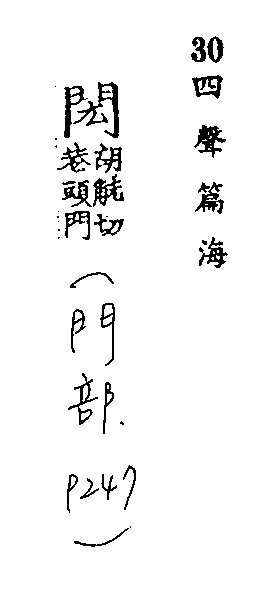 30四聲篇海
閎
胡觥切
巷頭門
(門部. P247)